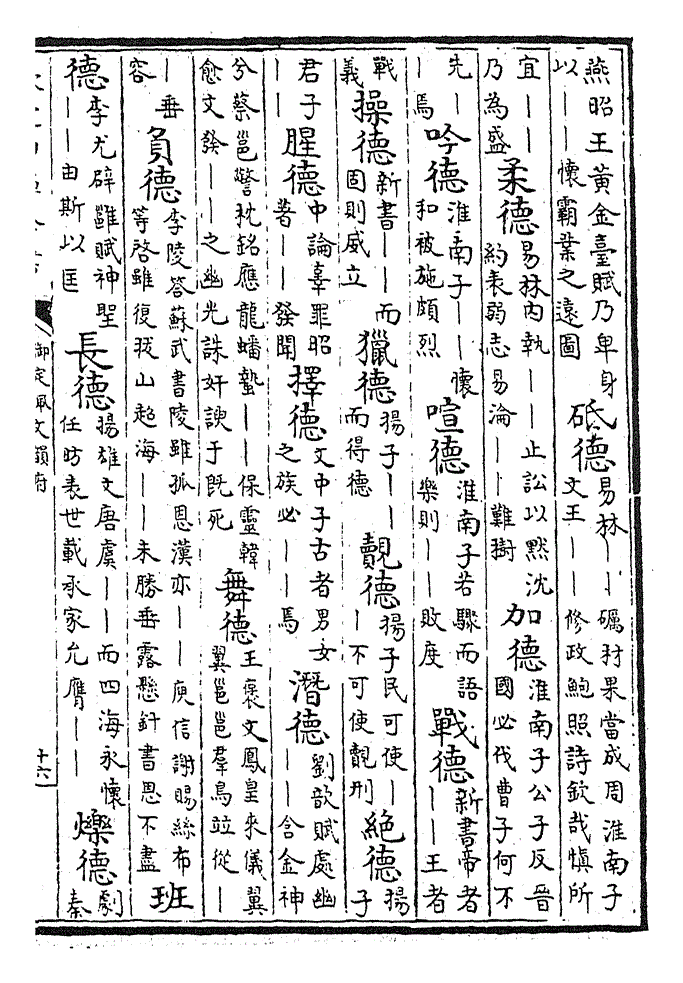 燕昭王黃金臺賦乃卑身
以｜｜懷霸業之遠圖
砥德
易林｜｜礪材果當成周淮南子
文王｜｜修政鮑照詩欽哉慎所
宜｜｜
乃為盛
柔德
易林内執｜｜止訟以黙沈
約表弱志易淪｜｜難樹
加德
淮南子公子反晉
國必伐曹子何不
先｜
｜焉
吟德
淮南子｜｜懷
和被施頗烈
喧德
淮南子若驟而語
樂則｜｜敗度
戰德
新書帝者
｜｜王者
戰
義
操德
新書｜｜而
固則威立
獵德
揚子｜｜
而得德
覿德
揚子民可使｜
｜不可使覿刑
絶德
揚
子
君子
｜｜
腥德
中論辜罪昭
著｜｜發聞
擇德
文中子古者男女
之族必｜｜焉
潛德
劉歆賦處幽
｜｜含金神
兮蔡邕警枕銘應龍蟠蟄｜｜保靈韓
愈文發｜｜之幽光誅奸諛于既死
舞德
王褒文鳳皇來儀翼
翼邕邕羣鳥竝從｜
｜垂
容
負德
李陵答蘇武書陵雖孤恩漢亦｜｜庾信謝賜絲布
等啓雖復拔山超海｜｜未勝垂露懸針書恩不盡
班
德
李尤辟雝賦神聖
｜｜由斯以匡
長德
揚雄文唐虞｜｜而四海永懷
任昉表世載承家允膺｜｜
爍德
劇
秦
御定佩文韻府
十六